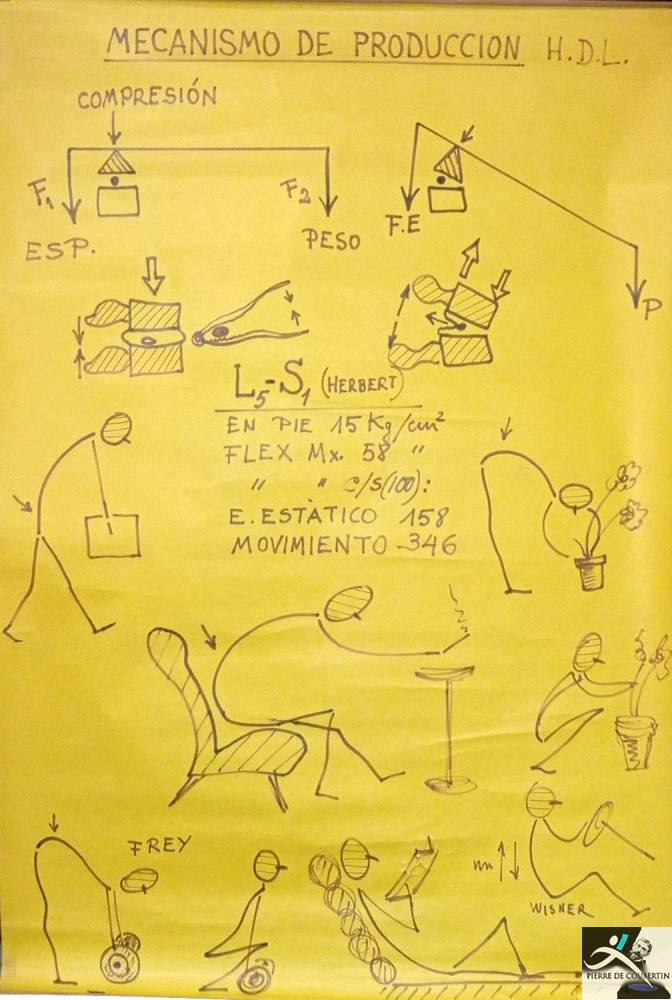 MECANISMO DE PRODUCCION H.D.L.
COMPRESIÓN
F1
F2
ESP.
PESO
F.E
P
L5-S1 (HERBERT)
EN PIE 15 Kg/cm²
FLEX Mx. 58 "
" " C/S(100):
E. ESTÀTICO 158
MOVIMIENTO -346
FREY
WISNER
PIERRE DE COUBERTIN